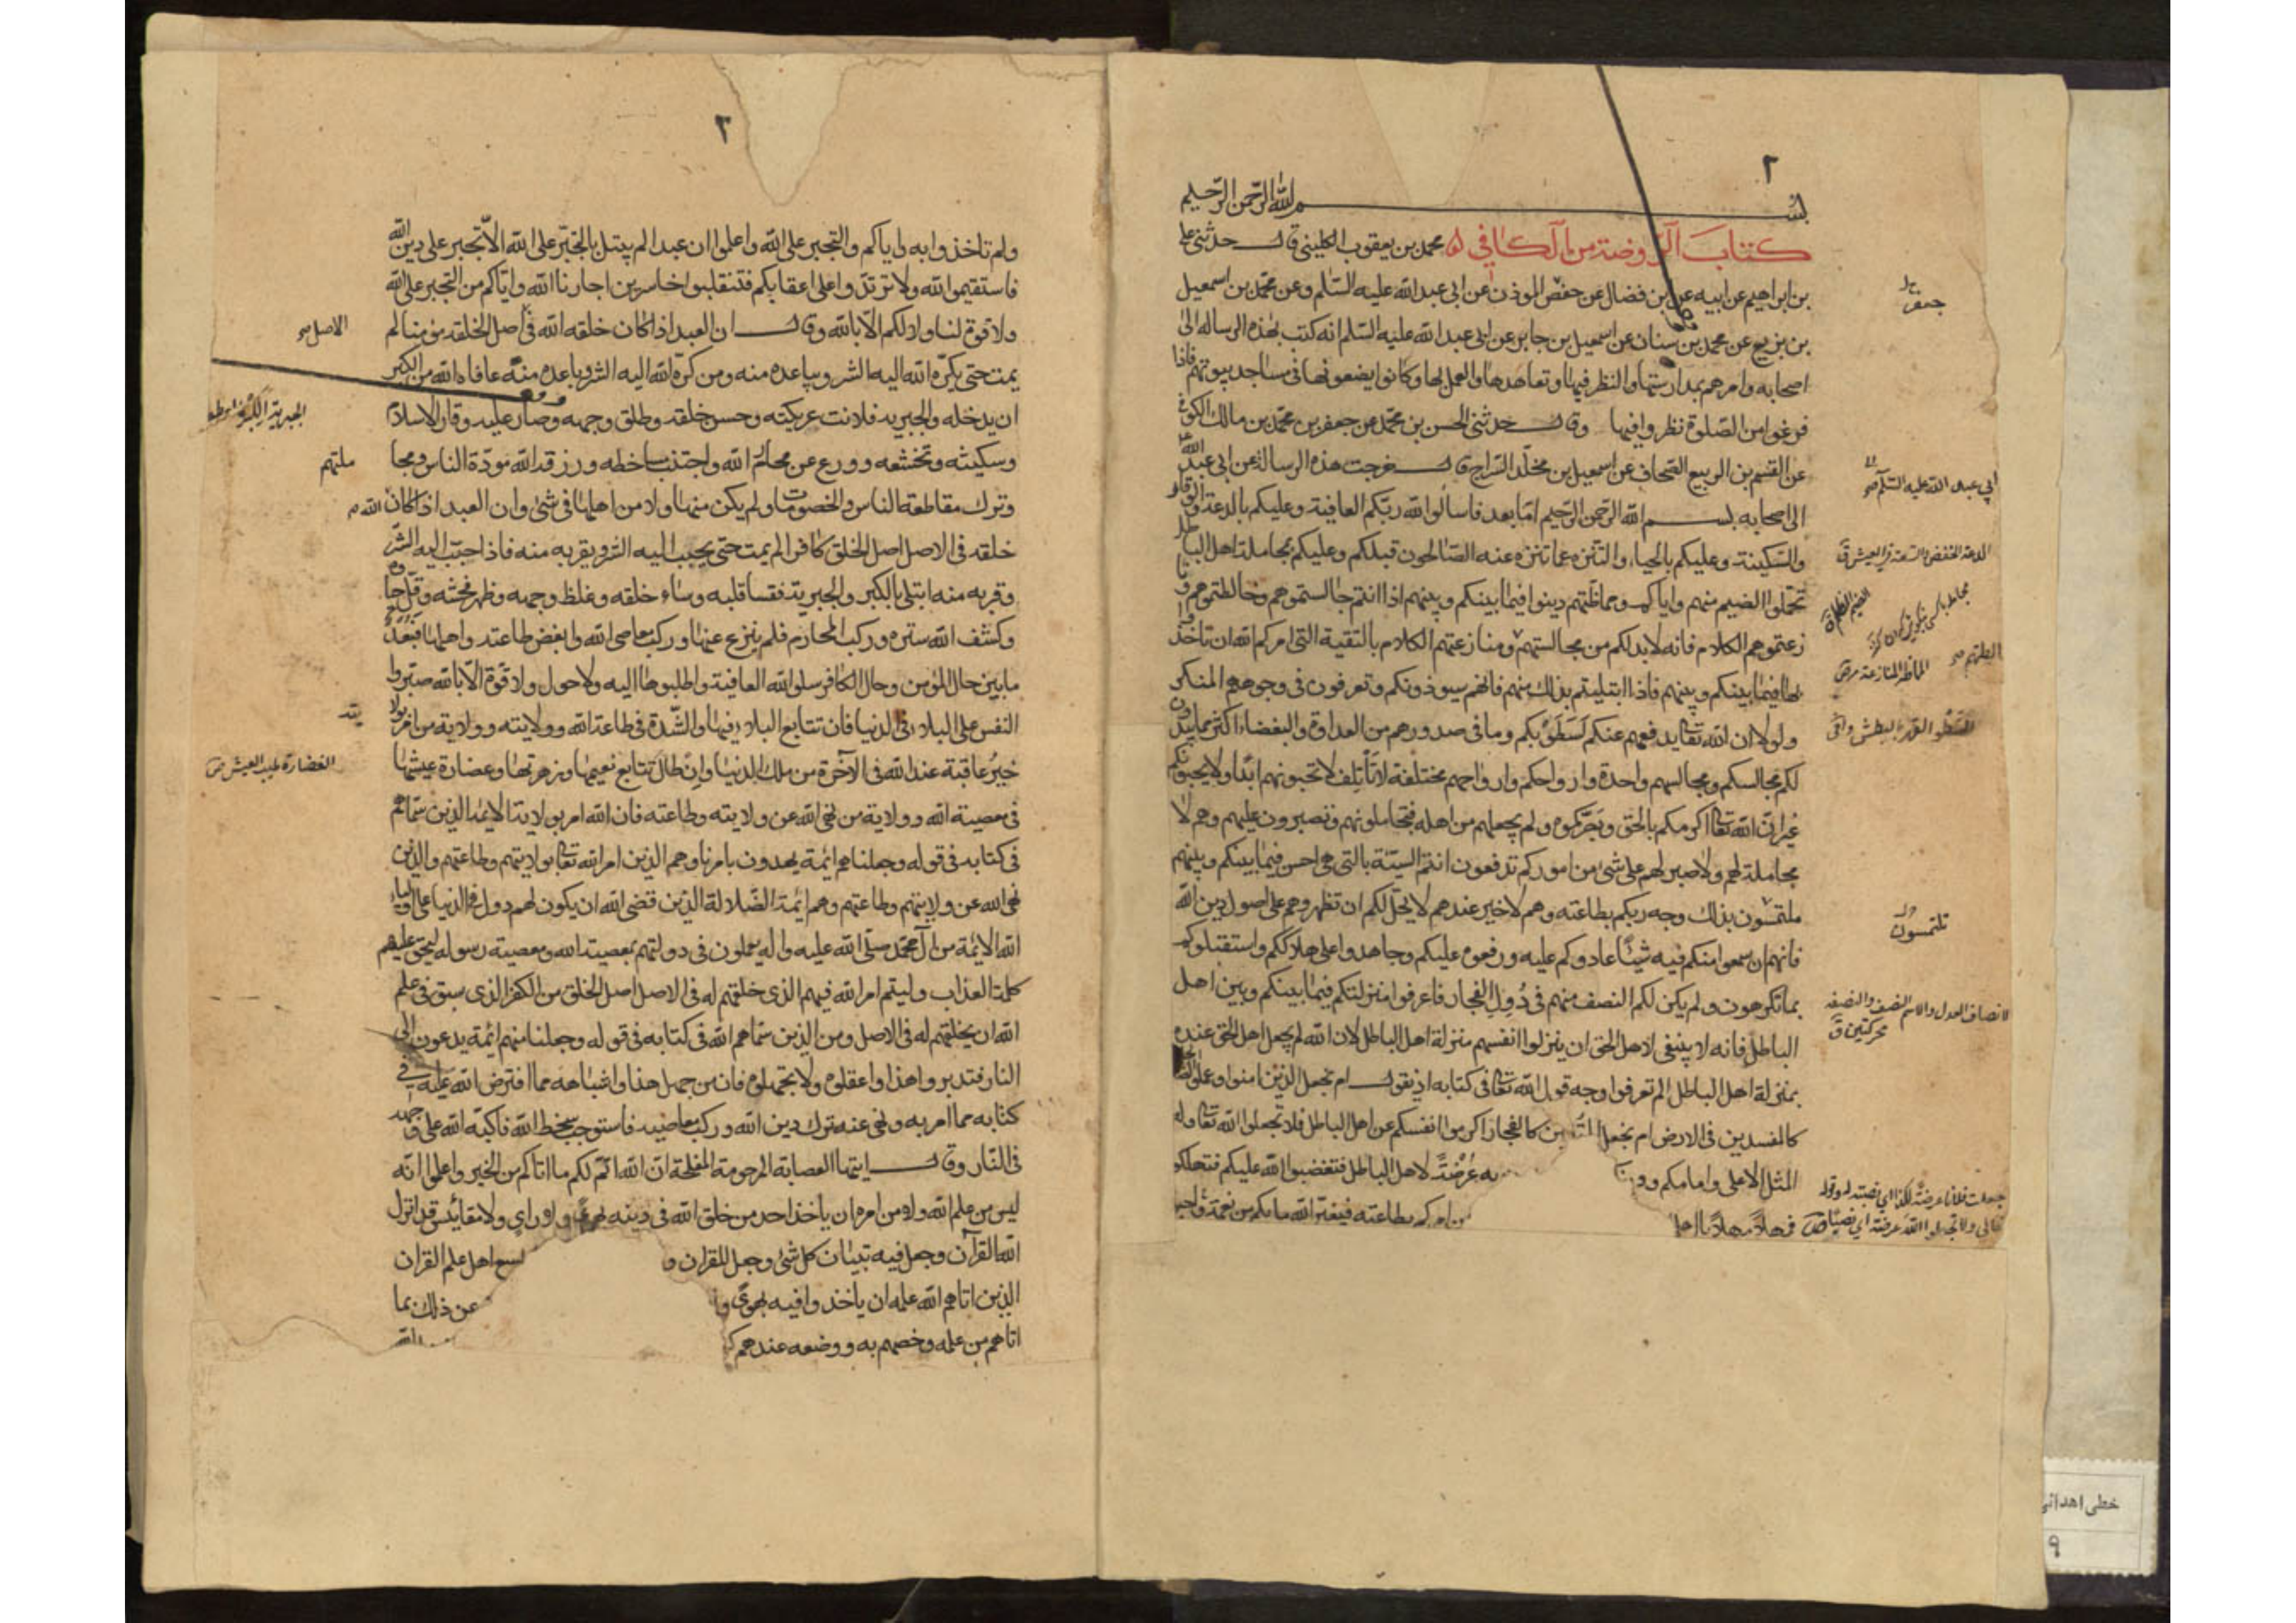 ٢
بسم الله الرحمن الرحيم
كتاب الروضة من الكافي محمد بن يعقوب الكليني قال حدثني علي
بن ابراهيم عن ابيه عن بن فضال عن حفص الموذن عن ابي عبد الله عليه السلم وعن محمد بن اسمعيل
بن بزيع عن محمد بن سنان عن اسمعيل بن جابر عن ابي عبد الله عليه السلم انه كتب بهذه الرساله الى
اصحابه وامرهم بمدارستها والنظر فيها وتعاهدها والعمل بها وكانوا يضعونها في مساجد بيوتهم فاذا
فرغوا من الصلوة نظروا فيها وقال حدثني الحسن بن محمد عن جعفر بن محمد بن مالك الكوفي
عن القسم بن الربيع الصحاف عن اسمعيل بن مخلد السراج قال خرجت هذه الرسالة عن ابي عبد الله
الى اصحابه بسم الله الرحمن الرحيم اما بعد فاسالوا الله ربكم العافية وعليكم بالدعة والوقار
والسكينة وعليكم بالحياء والتنزه عما تنزه عنه الصالحون قبلكم وعليكم بمجاملة اهل الباطل
تحملوا الضيم منهم واياكم ومماظتهم دينوا فيما بينكم وبينهم اذا انتم جالستموهم وخالطتموهم ونا
زعتموهم الكلام فانه لابد لكم من مجالستهم ومنازعتهم الكلام بالتقية التي امركم الله ان تاخذوا
بها فيما بينكم وبينهم فاذا ابتليتم بذلك منهم فانهم سيوذونكم وتعرفون في وجوههم المنكر
ولولا ان الله تعالى يدفعهم عنكم لسطوا بكم وما في صدورهم من العداوة والبغضاء اكثر مما يبدون
لكم مجالسكم ومجالسهم واحدة وارواحكم وارواحهم مختلفة لا تأتلف لا تحبونهم ابدا ولا يحبونكم
غير ان الله تعالى اكرمكم بالحق وبصركموه ولم يجعلهم من اهله فتجاملونهم وتصبرون عليهم وهم لا
مجاملة لهم ولا صبر لهم على شئ من اموركم تدفعون انتم السيئة بالتي هي احسن فيما بينكم وبينهم
ملتمسون بذلك وجه ربكم بطاعته وهم لا خير عندهم لا يحل لكم ان تظهروهم على اصول دين الله
فانهم ان سمعوا منكم فيه شيئا عادوكم عليه ورفعوه عليكم وجاهدوا على هلاككم واستقبلوكم
بما تكرهون ولم يكن لكم النصف منهم في دول الفجار فاعرفوا منزلتكم فيما بينكم وبين اهل
الباطل فانه لا ينبغي لاهل الحق ان ينزلوا انفسهم منزلة اهل الباطل لان الله لم يجعل اهل الحق عنده
بمنزلة اهل الباطل الم تعرفوا وجه قول الله تعالى في كتابه اذ يقول ام نجعل الذين امنوا وعملوا
كالمفسدين في الارض ام نجعل المتقين كالفجار اكرموا انفسكم عن اهل الباطل فلا تجعلوا الله تعالى وله
المثل الاعلى وامامكم عرضة لاهل الباطل فتغضبوا الله عليكم فتهلكوا
فمهلا مهلا يا اهل من امركم بطاعته فيغير الله ما بكم من نعمة
جعفر
ابي عبد الله عليه السلم
الدعة الخفض والسعة في العيش ق
تلتمسون
الانصاف العدل والاسم النصف والنصفة
محركتين ق
٢
ولم تاخذوا به واياكم والتجبر على الله واعلموا ان عبدا لم يبتل بالتجبر على الله الا تجبر على دين الله
فاستقيموا لله ولا ترتدوا على اعقابكم فتنقلبوا خاسرين اجارنا الله واياكم من التجبر على الله
ولا قوة لنا ولكم الا بالله وقال ان العبد اذا كان خلقه الله في اصل الخلقه مؤمنا لم
يمت حتى يكره الله اليه الشر ويباعده منه ومن كره الله اليه الشر وباعده منه عافاه الله من الكبر
ان يدخله والجبرية فلانت عريكته وحسن خلقه وطلق وجهه وصار عليه وقار الاسلام
وسكينته وتخشعه وورع عن محارم الله واجتنب مساخطه ورزقه الله مودة الناس ومجا
وترك مقاطعة الناس والخصومات ولم يكن منها ولا من اهلها في شئ وان العبد اذا كان الله
خلقه في الاصل اصل الخلق كافرا لم يمت حتى يحبب اليه الشر ويقربه منه فاذا حبب اليه الشر
وقربه منه ابتلى بالكبر والجبرية فقسا قلبه وساء خلقه وغلظ وجهه وظهر فحشه وقل حيا
وكشف الله ستره وركب المحارم فلم ينزع عنها وركب معاصي الله وابغض طاعته واهلها فبعد
ما بين حال المؤمن وحال الكافر سلوا الله العافية واطلبوها اليه ولا حول ولا قوة الا بالله صبروا
النفس على البلاء في الدنيا فان تتابع البلاء فيها والشدة في طاعة الله وولايته وولاية من امر بولا
خير عاقبة عند الله في الآخرة من ملك الدنيا وان طال تتابع نعيمها وزهرتها وغضارة عيشها
في معصية الله وولاية من نهى الله عن ولايته وطاعته فان الله امر بولاية الايمة الذين سماهم
في كتابه في قوله وجعلناهم ائمة يهدون بامرنا وهم الذين امر الله تعالى بولايتهم وطاعتهم والذين
نهى الله عن ولايتهم وطاعتهم وهم ائمة الضلالة الذين قضى الله ان يكون لهم دول في الدنيا على اولياء
الله الائمة من ال محمد صلى الله عليه واله يعملون في دولتهم بمعصية الله ومعصية رسوله ليحق عليهم
كلمة العذاب وليتم امر الله فيهم الذي خلقهم له في الاصل اصل الخلق من الكفر الذي سبق في علم
الله ان يخلقهم له في الاصل ومن الذين سماهم الله في كتابه في قوله وجعلنا منهم ائمة يدعون الى
النار فتدبروا هذا واعقلوه ولا تجهلوه فان من جهل هذا واشباهه مما افترض الله عليه في
كتابه مما امر به ونهى عنه ترك دين الله وركب معاصيه فاستوجب سخط الله فاكبه الله على وجهه
في النار وقال ايتها العصابة المرحومة المفلحة ان الله اتم لكم ما اتاكم من الخير واعلموا انه
ليس من علم الله ولا من امره ان ياخذ احد من خلق الله في دينه بهوى ولا راي ولا مقائيس قد انزل
الله القرآن وجعل فيه تبيان كل شئ وجعل للقران و لا يسع اهل علم القران
الذين اتاهم الله علمه ان ياخذوا فيه بهوى و عن ذلك بما
اتاهم من علمه وخصهم به ووضعه عندهم الله
الاصل
ملتهم
الغضارة طيب العيش
خطى اهدائى
٩